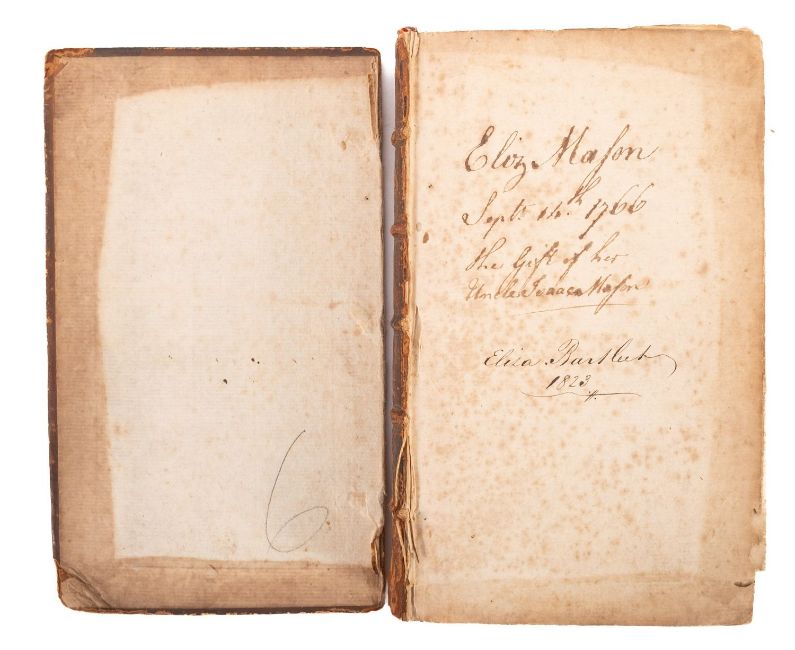 6
Eliz Maſon
Sept. 14th 1766
the Gift of her
Uncle Isaac Maſon
Eliza Bartlett
1823